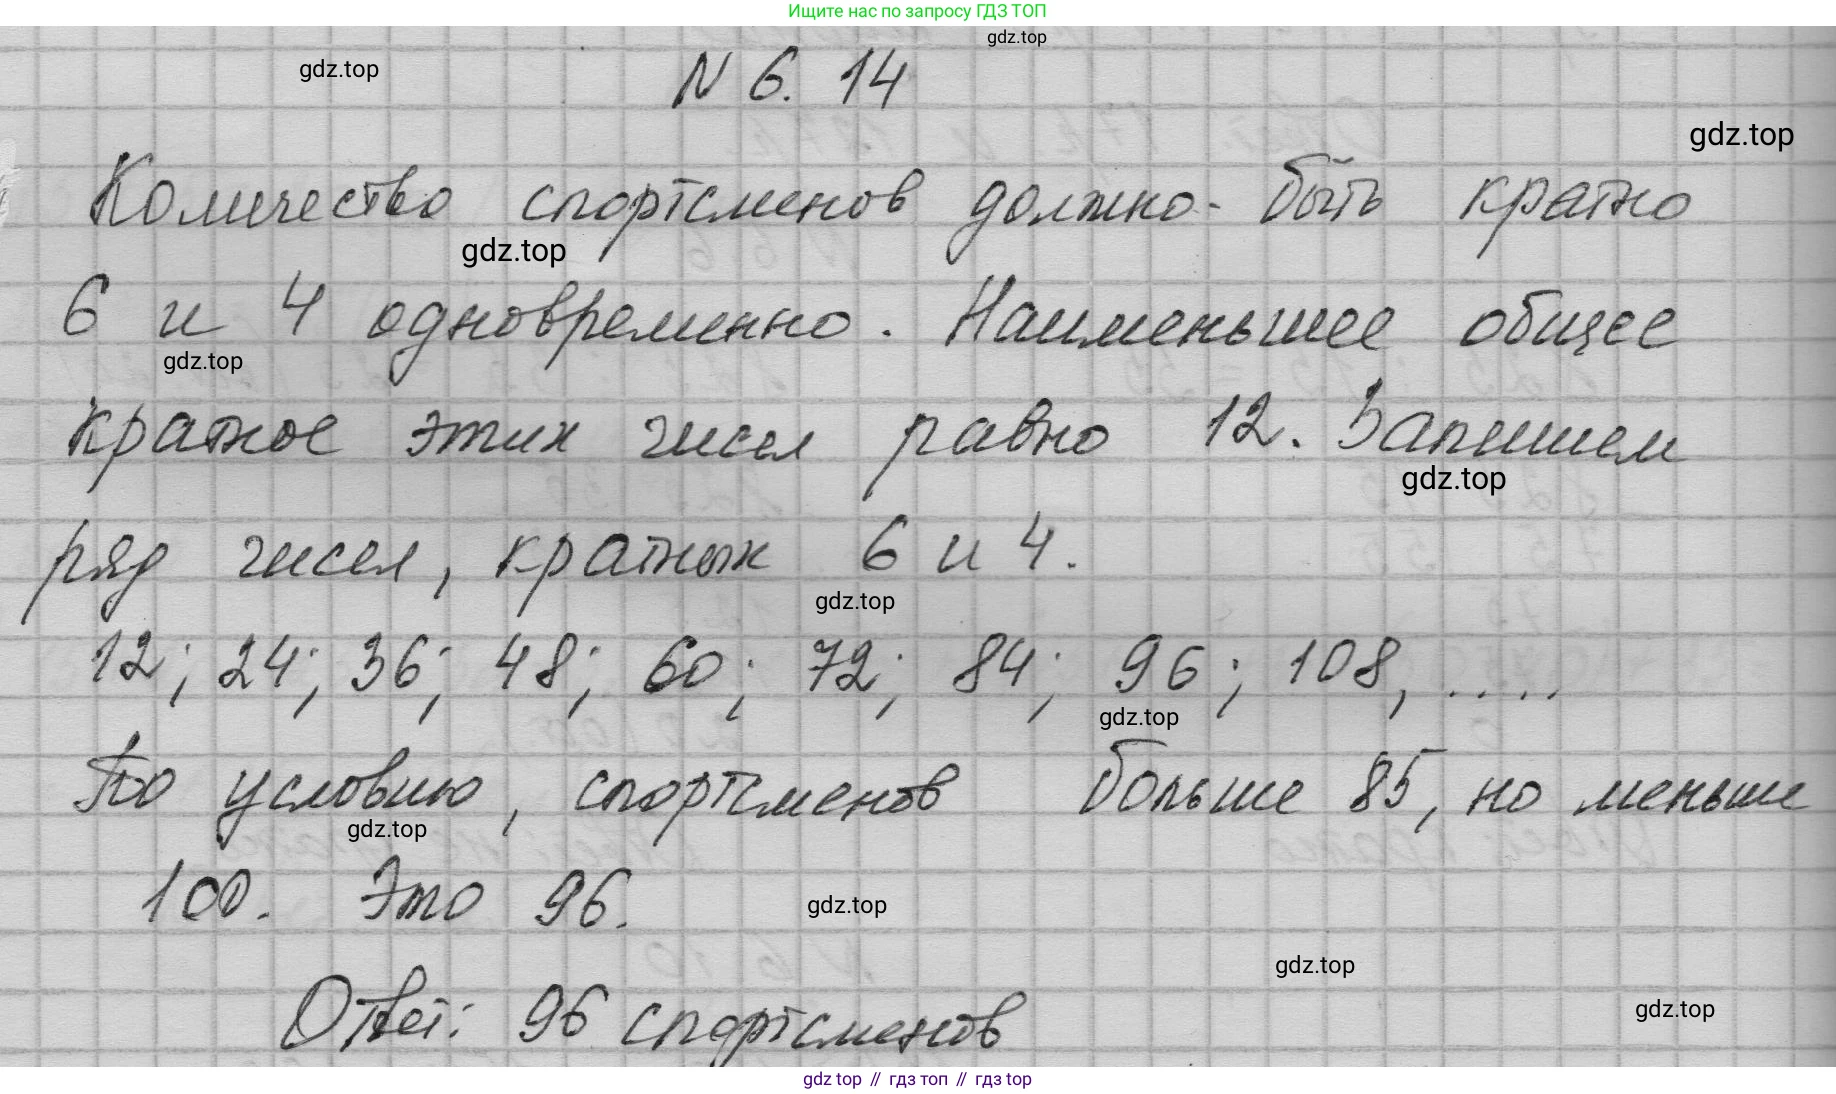 Ищите нас по запросу ГДЗ ТОП
gdz.top
N 6. 14
gdz.top
gdz.top
Количество спортсменов должно быть кратно
gdz.top
6 и 4 одновременно. Наименьшее общее
gdz.top
кратное этих чисел равно 12. Запишем
gdz.top
ряд чисел, кратных 6 и 4.
gdz.top
12; 24; 36; 48; 60; 72; 84; 96; 108, ....
gdz.top
По условию, спортсменов больше 85, но меньше
gdz.top
100. Это 96.
gdz.top
gdz.top
Ответ: 96 спортсменов
gdz.top
gdz top // гдз топ // гдз top